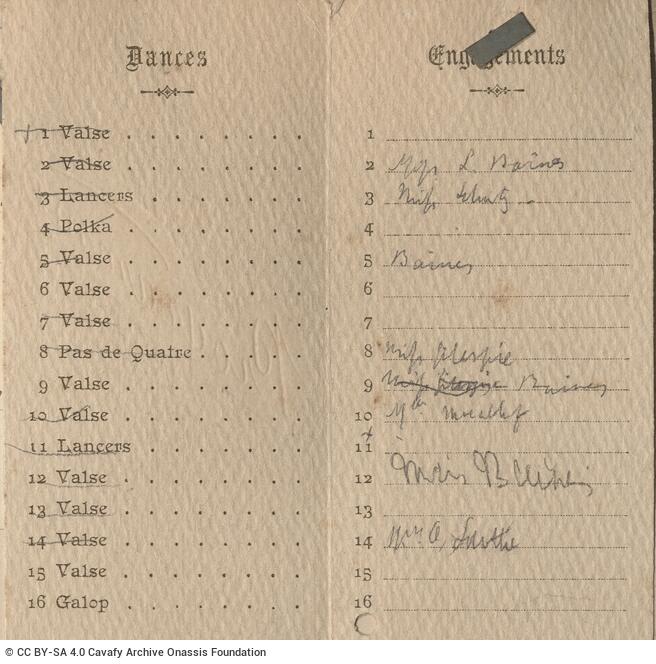 Dances
1 Valse
2 Valse
3 Lancers
4 Polka
5 Valse
6 Valse
7 Valse
8 Pas de Quatre
9 Valse
10 Valse
11 Lancers
12 Valse
13 Valse
14 Valse
15 Valse
16 Galop
Engagements
1
2 L. Baines
3 Miss
4
5 Baines
6
7
8 Miss Gilespie
9 Miss Baines
10
11
12
13
14
15
16
© CC BY-SA 4.0 Cavafy Archive Onassis Foundation